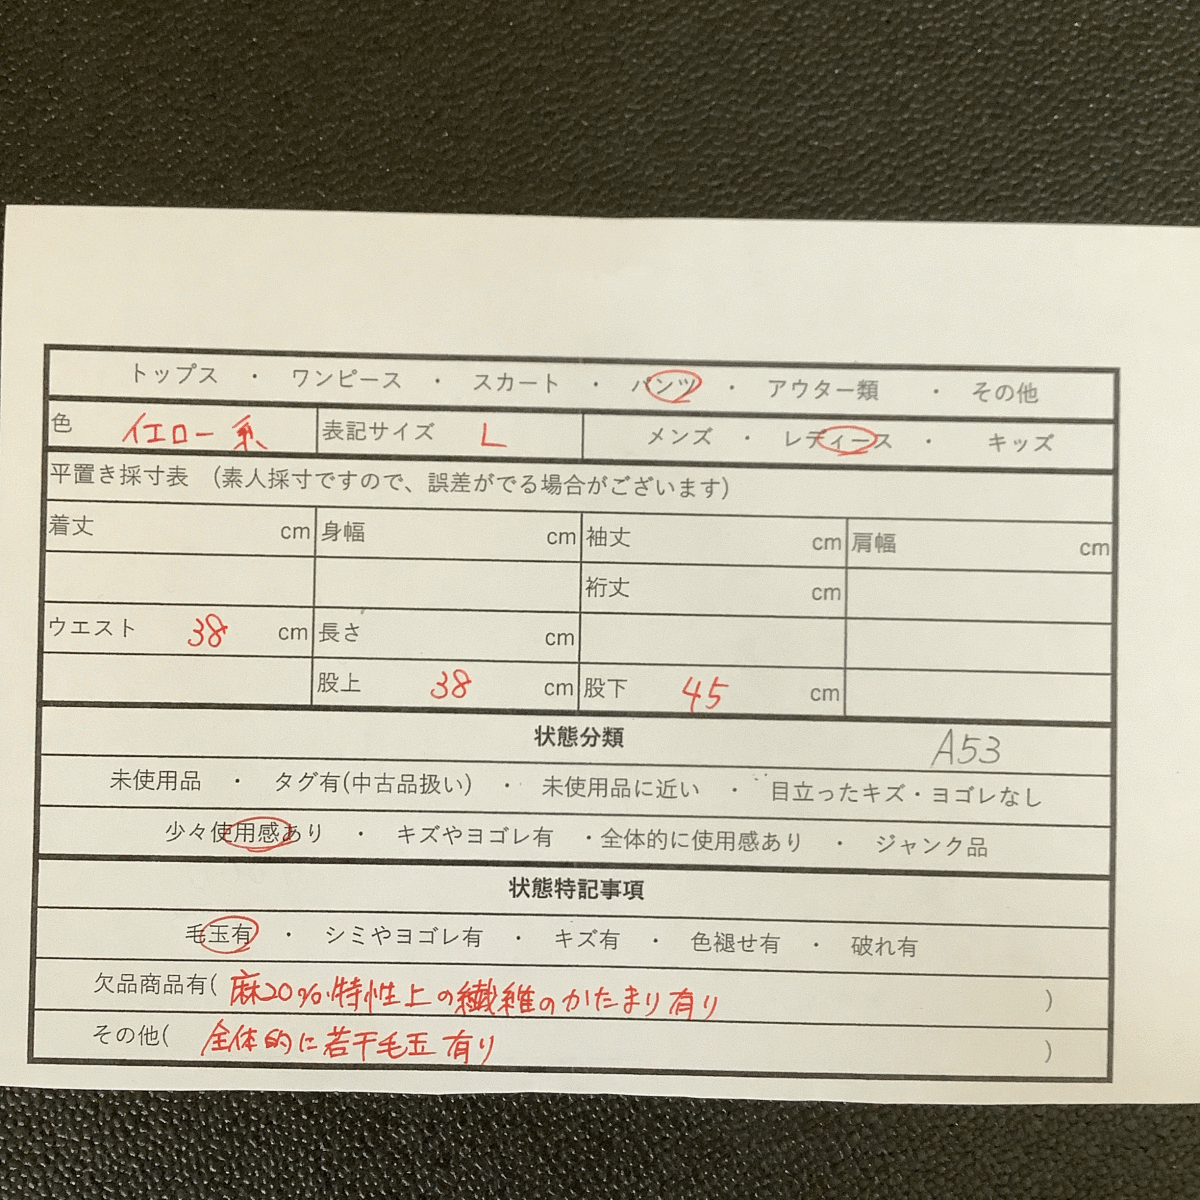 トップス ・ ワンピース ・ スカート ・ パンツ ・ アウター類 ・ その他
色 イエロー系 表記サイズ L メンズ ・ レディース ・ キッズ
平置き採寸表 (素人採寸ですので、誤差がでる場合がございます)
着丈 cm 身幅 cm 袖丈 cm 肩幅 cm
裄丈 cm
ウエスト 38 cm 長さ cm
股上 38 cm 股下 45 cm
状態分類 A53
未使用品 ・ タグ有(中古品扱い) ・ 未使用品に近い ・ 目立ったキズ・ヨゴレなし
少々使用感あり ・ キズやヨゴレ有 ・全体的に使用感あり ・ ジャンク品
状態特記事項
毛玉有 ・ シミやヨゴレ有 ・ キズ有 ・ 色褪せ有 ・ 破れ有
欠品商品有( 麻20%.特性上の繊維のかたまり有り )
その他( 全体的に若干毛玉有り )